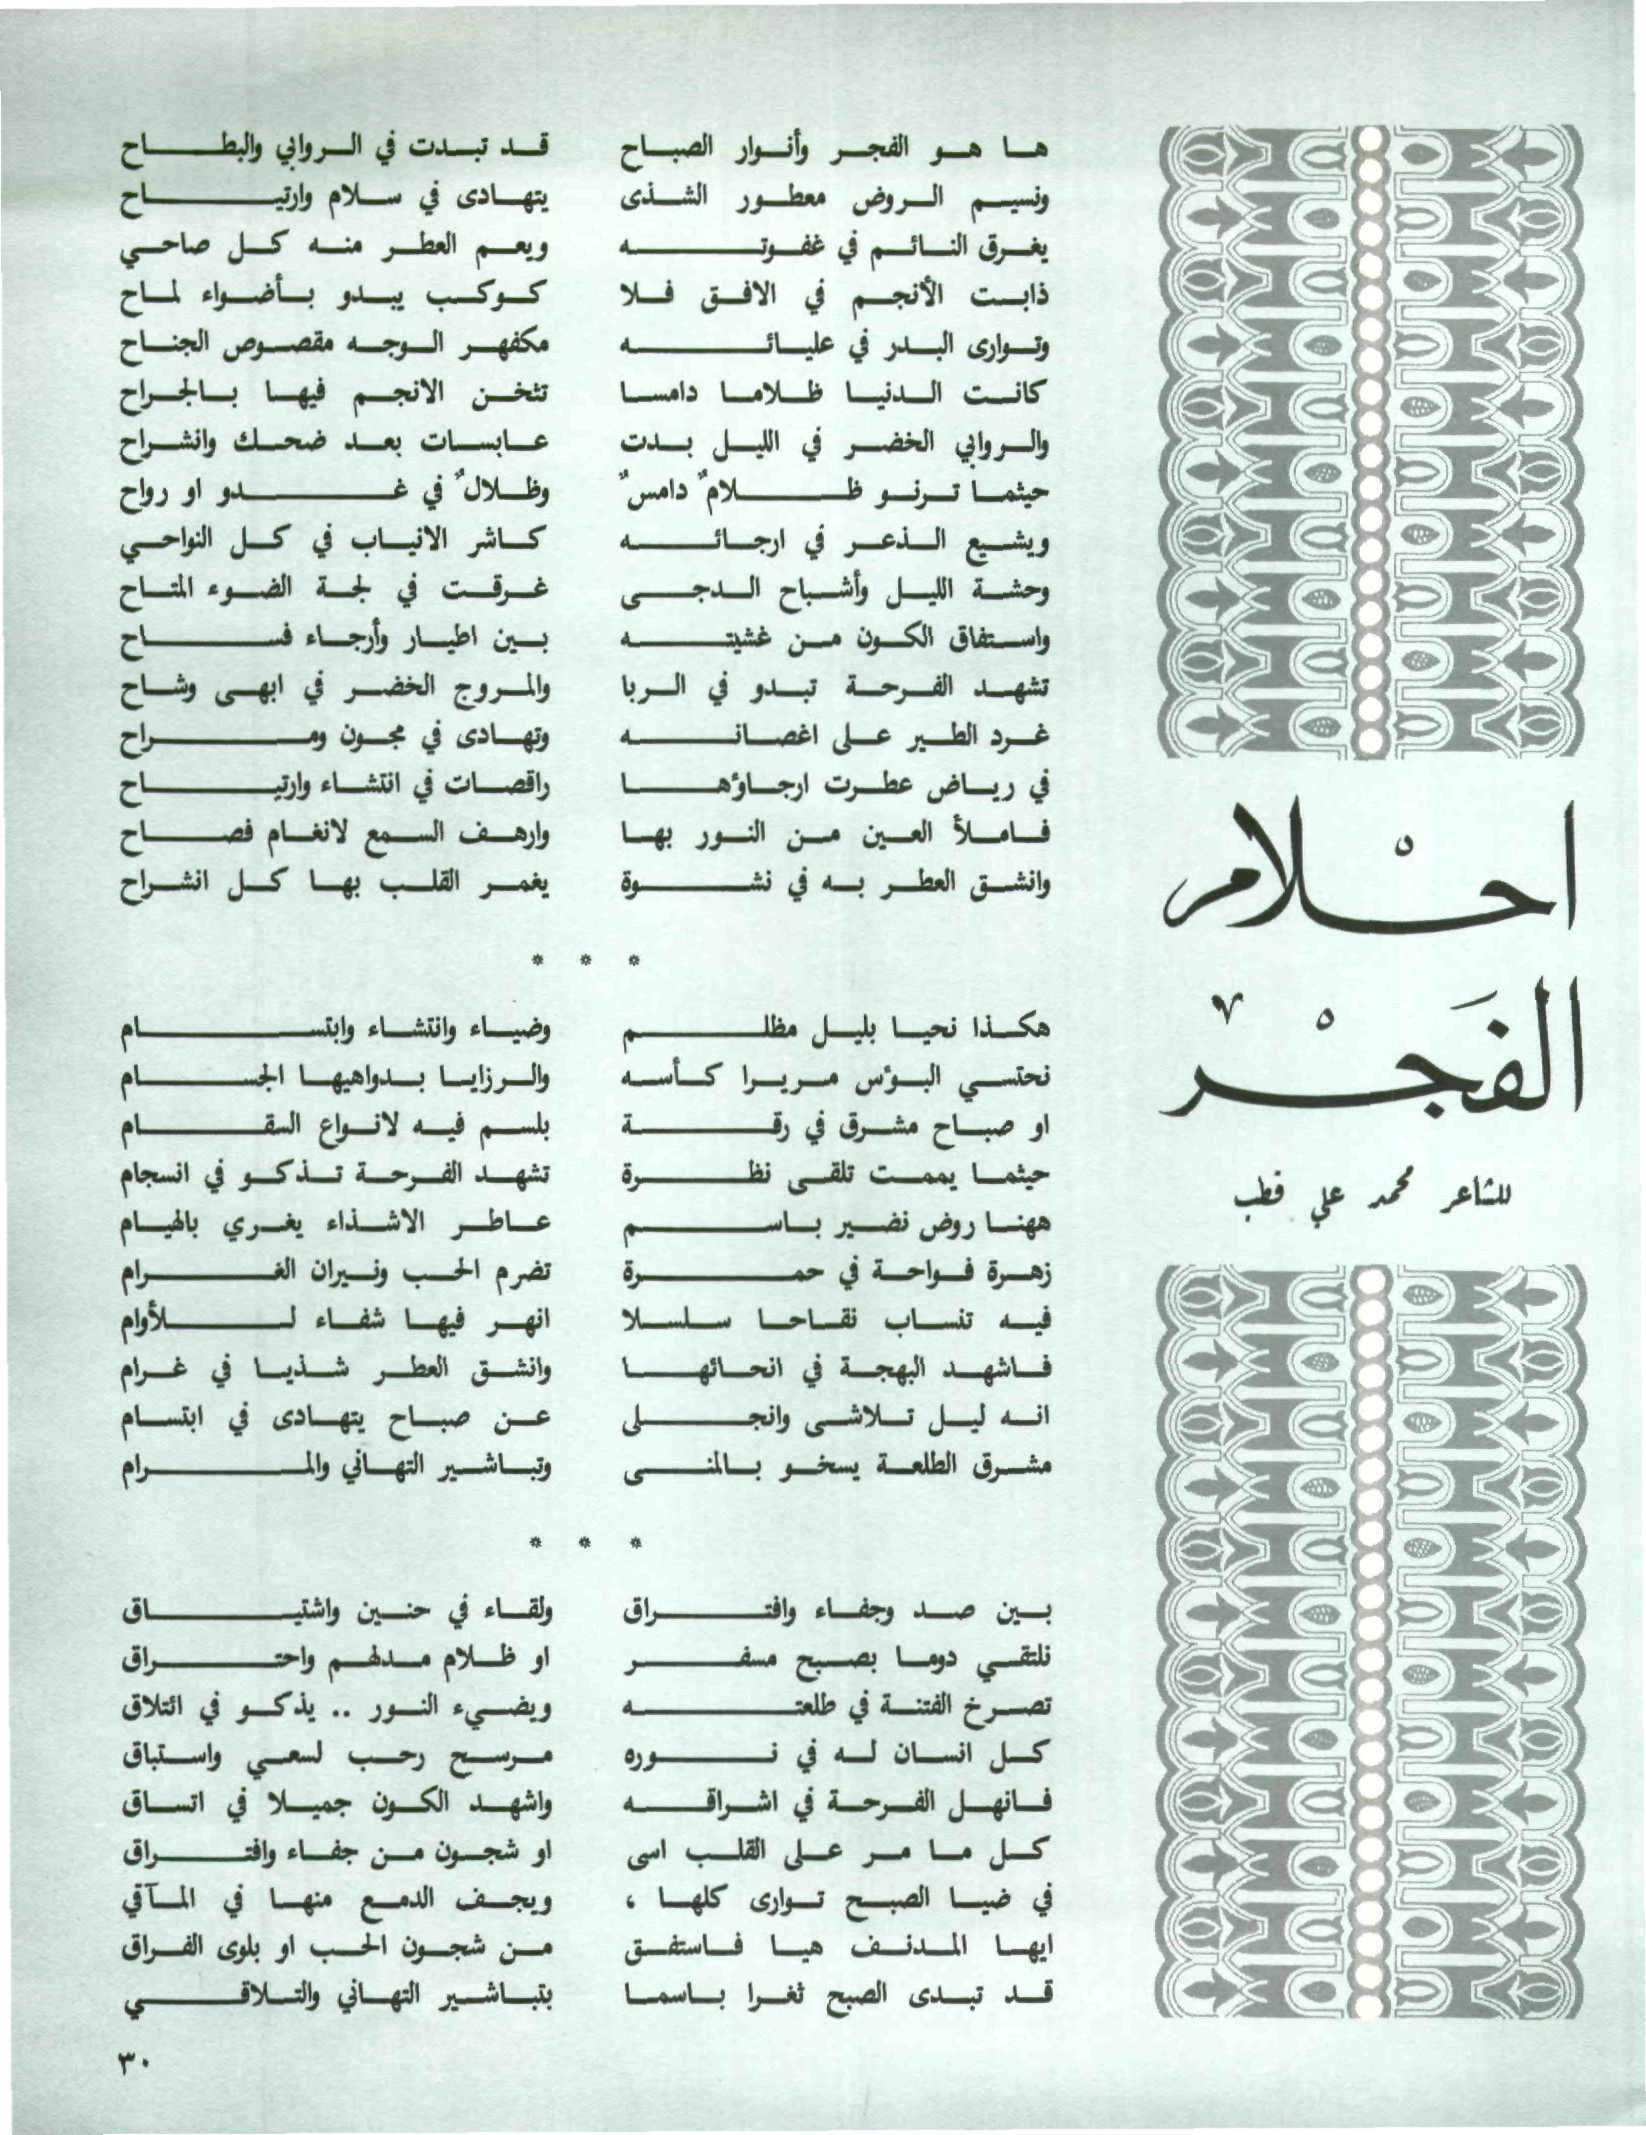 احْلام
الفَجْر
للشاعر محمد علي قطب
ها هو الفجر وأنوار الصباح قد تبدت في الروابي والبطاح
ونسيم الروض معطور الشذى يتهادى في سلام وارتياح
يغرق النائم في غفوته ويعم العطر منه كل صاحي
ذابت الأنجم في الافق فلا كوكب يبدو بأضواء لماح
وتوارى البدر في عليائه مكفهر الوجه مقصوص الجناح
كانت الدنيا ظلاما دامسا تثخن الانجم فيها بالجراح
والروابي الخضر في الليل بدت عابسات بعد ضحك وانشراح
حيثما ترنو ظلامٌ دامسٌ وظلالٌ في غدو او رواح
ويشيع الذعر في ارجائه كاشر الانياب في كل النواحي
وحشة الليل وأشباح الدجى غرقت في لجة الضوء المتاح
واستفاق الكون من غشيته بين اطيار وأرجاء فساح
تشهد الفرحة تبدو في الربا والمروج الخضر في ابهى وشاح
غرد الطير على اغصانه وتهادى في مجون ومراح
في رياض عطرت ارجاؤها راقصات في انتشاء وارتياح
فاملأ العين من النور بها وارهف السمع لانغام فصاح
وانشق العطر به في نشوة يغمر القلب بها كل انشراح
* * *
هكذا نحيا بليل مظلم وضياء وانتشاء وابتسام
نحتسي البؤس مريرا كأسه والرزايا بدواهيها الجسام
او صباح مشرق في رقة بلسم فيه لانواع السقام
حيثما يممت تلقى نظرة تشهد الفرحة تذكو في انسجام
ههنا روض نضير باسم عاطر الاشذاء يغري بالهيام
زهرة فواحة في حمرة تضرم الحب ونيران الغرام
فيه تنساب نقاحا سلسلا انهر فيها شفاء للأوام
فاشهد البهجة في انحائها وانشق العطر شذيا في غرام
انه ليل تلاشى وانجلى عن صباح يتهادى في ابتسام
مشرق الطلعة يسخو بالمنى وتباشير التهاني والمرام
* * *
بين صد وجفاء وافتراق ولقاء في حنين واشتياق
نلتقي دوما بصبح مسفر او ظلام مدلهم واحتراق
تصرخ الفتنة في طلعته ويضيء النور .. يذكو في ائتلاق
كل انسان له في نوره مرسح رحب لسعي واستباق
فانهل الفرحة في اشراقه واشهد الكون جميلا في اتساق
كل ما مر على القلب اسى او شجون من جفاء وافتراق
في ضيا الصبح توارى كلها ، ويجف الدمع منها في المآقي
ايها المدنف هيا فاستفق من شجون الحب او بلوى الفراق
قد تبدى الصبح ثغرا باسما بتباشير التهاني والتلاقي
٣٠